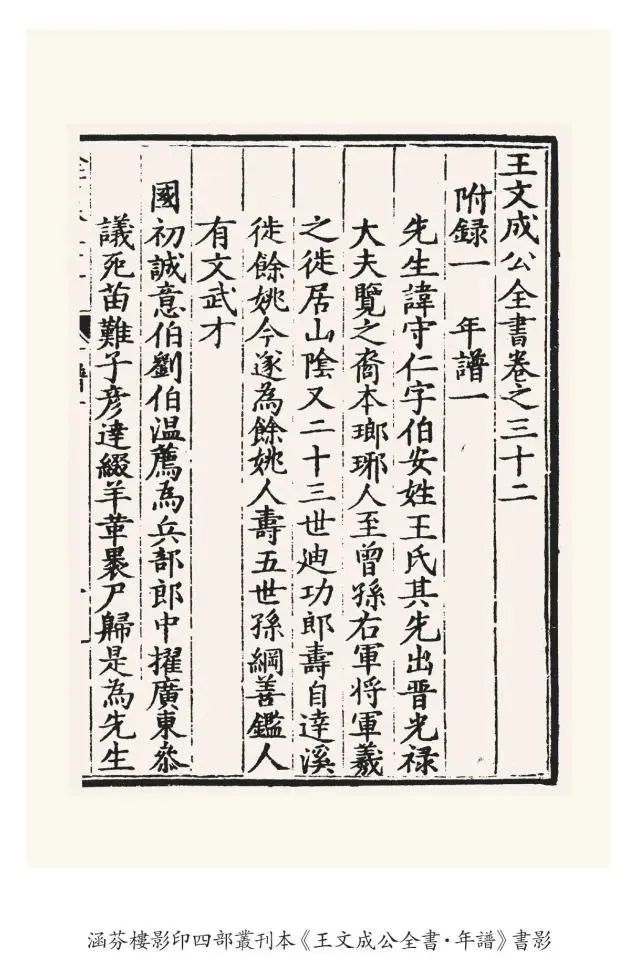 王文成公全書卷之三十二
附録一 年譜一
先生諱守仁字伯安姓王氏其先出晋光禄
大夫覽之裔本瑯琊人至曾孫右軍将軍羲
之徙居山陰又二十三世迪功郎壽自達溪
徙餘姚今遂為餘姚人壽五世孫綱善鑑人
有文武才
國初誠意伯劉伯温薦為兵部郎中擢廣東叅
議死苗難子彦達綴羊革褁尸歸是為先生
涵芬樓影印四部叢刊本《王文成公全書·年譜》書影